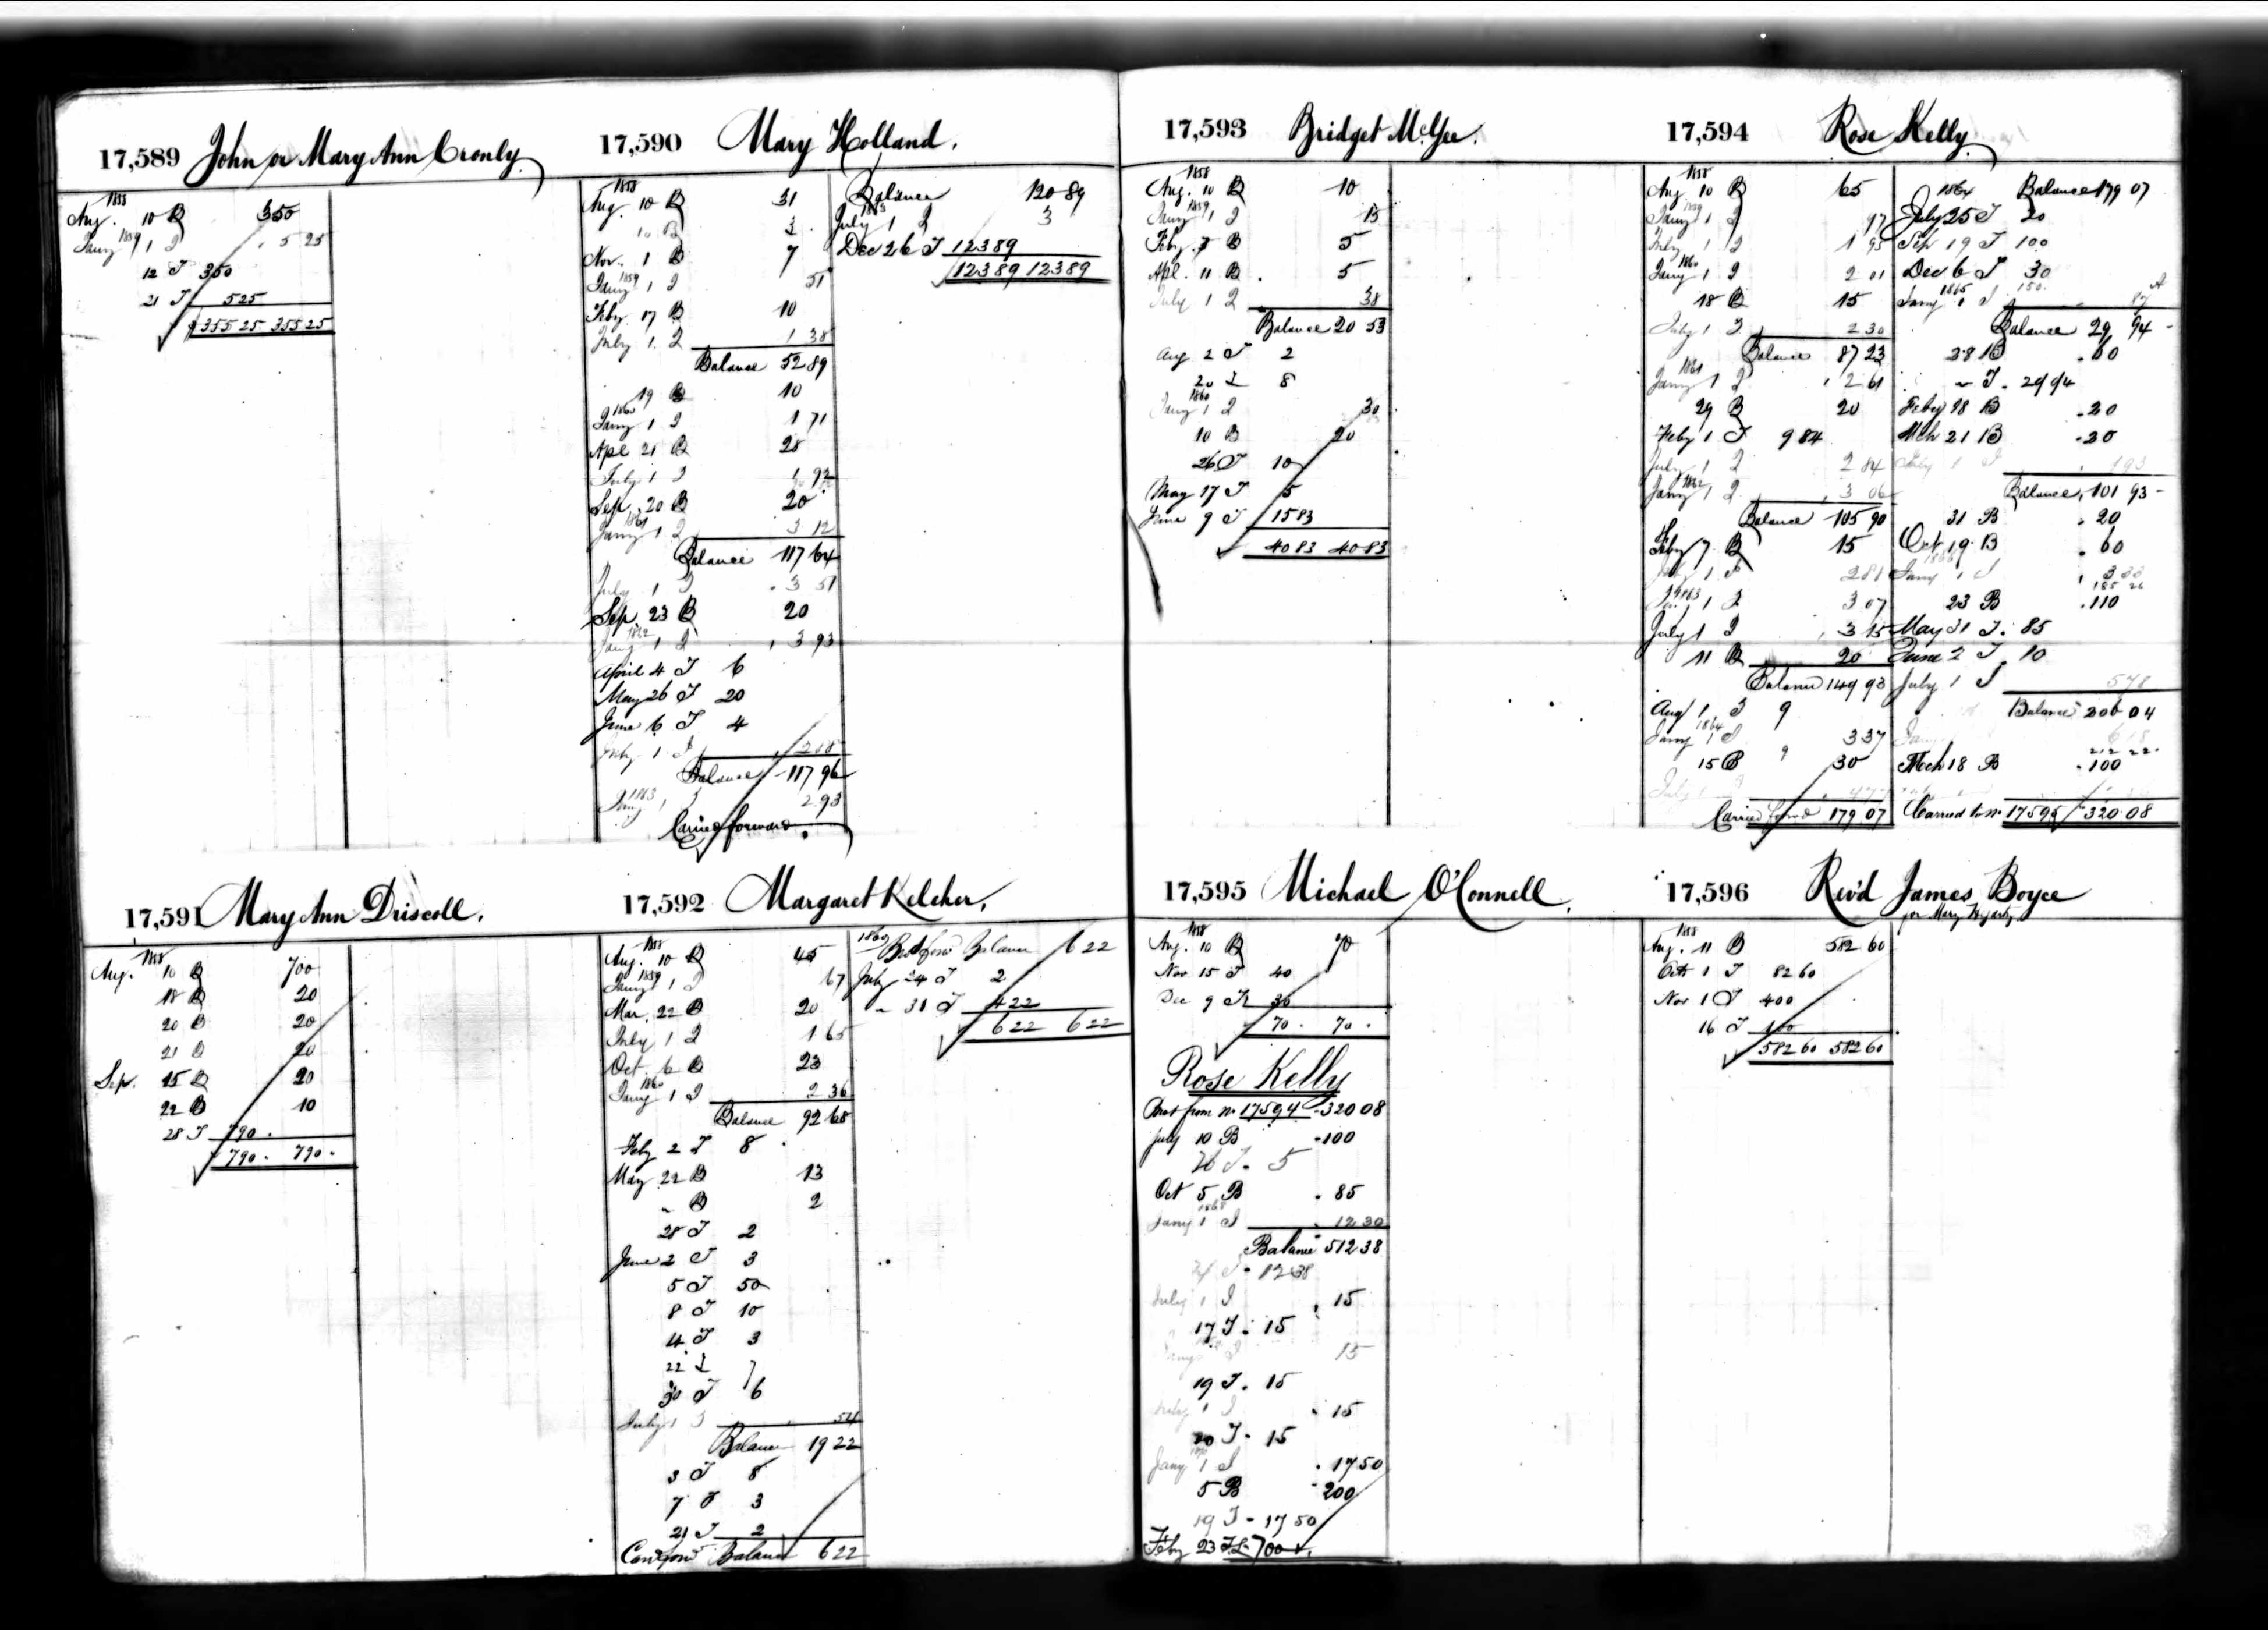 17,589 John or Mary Ann Cronly
1858
Aug. 10 B 350
Jany 1859 1 I 5 25
12 T 350
21 T 525
355 25 355 25
17,590 Mary Holland.
1858
Aug. 10 B 31
10 B 3
Nov. 1 B 7
Jany 1859 1 I 51
Feby 17 B 10
July 1 I 1 38
Balance 52 89
19 B 10
1860
Jany 1 I 1 71
Apl 21 B 28
July 1 I 1 92
Sep. 20 B 20
1861
Jany 1 I 3 12
Balance 117 64
July 1 I 3 51
Sep. 23 B 20
1862
Jany 1 I 3 93
April 4 T 6
May 26 T 20
June 6 T 4
July 1 I
Balance 117 96
1863
Jany 1 I 2 93
Carried forward.
Balance 120 89
1863
July 1 I 3
Dec 26 T 123 89
123 89 123 89
17,591 Mary Ann Driscoll.
1858
Aug. 10 B 700
18 B 20
20 B 20
21 B 20
Sep. 15 B 20
22 B 10
28 T 790.
790. 790.
17,592 Margaret Kelcher.
1858
Aug. 10 B 45
1859
Jany 1 I 67
Mar. 22 B 20
July 1 I 1 65
Oct. 6 B 23
1860
Jany 1 I 2 36
Balance 92 68
Feby 2 T 8
May 22 B 13
" B 2
28 T 2
June 2 T 3
5 T 50
8 T 10
T 3
22 T 7
30 T 6
July 1 I 54
Balance 19 22
3 T 8
7 T 3
21 T 2
Car. forw Balance 6 22
1860 Bot forw Balance 6 22
July 24 T 2
" 31 T 4 22
6 22 6 22
17,593 Bridget McGee.
1858
Aug. 10 B 10
1859
Jany 1 I 15
Feby. 7 B 5
Apl. 11 B 5
July 1 I 38
Balance 20 53
Aug 2 T 2
20 T 8
1860
Jany 1 I 30
10 B 20
26 T 10
May 17 T 5
June 9 T 15 83
40 83 40 83
17,594 Rose Kelly
1858
Aug 10 B 65
1859
Jany 1 I 97
July 1 I 1 95
1860
Jany 1 I 2 01
18 B 15
July 1 I 2 30
Balance 87 23
1861
Jany 1 I 2 61
29 B 20
Feby 1 T 9 84
July 1 I 2 84
1862
Jany 1 I 3 06
Balance 105 90
Feby 7 B 15
July 1 I 2 81
1863
Jany 1 I 3 07
July 1 I 3 15
11 B 20
Balance 149 93
Aug 1 T 9
1864
Jany 1 I 3 37
15 B 30
July 1
Carried forwd 179 07
1864 Balance 179 07
July 25 T 20
Sep 19 T 100
Dec 6 T 30
1865 150.
Jany 1 I 87
Balance 29 94
28 B 60
" T. 29 94
Feby 28 B 20
Mch 21 B 20
July 1 I 1 93
Balance, 101 93
31 B 20
Oct 19 B 60
1866
Jany 1 I 3 33
185 26
23 B 110
May 31 T. 85
June 2 T. 10
July 1 I 5 78
Balance 206 04
Jany 6 18
212 22
Mch 18 B 100
Carried to No 17595 320.08
17,595 Michael O'Connell.
1858
Aug. 10 B 70
Nov 15 T 40
Dec 9 T 30
70. 70.
Rose Kelly
Brot from No 17594 320 08
July 10 B 100
26 T. 5
Oct 5 B 85
1868
Jany 1 I 12 30
Balance 512 38
T. 12 38
July 1 I 15
17 T. 15
Jany I 15
19 T. 15
July 1 I 15
20 T. 15
Jany 1 I 17 50
5 B 200
19 T. 17 50
Feby 23 T. 700
17,596 Rev'd James Boyce
for Mary
1858
Aug. 11 B 582 60
Oct 1 T 82 60
Nov 1 T 400
16 T 100
582 60 582 60